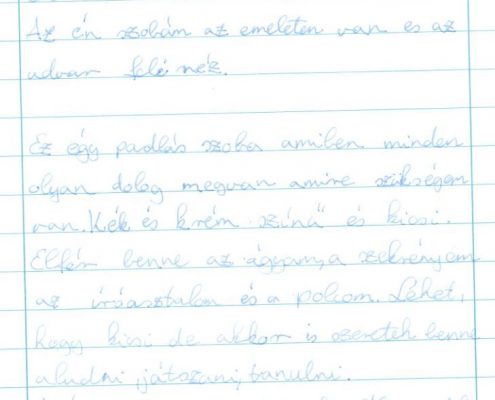 Az én szobám az emeleten van es az
udvar felé néz.
Ez égy padlás szoba amiben minden
olyan dolog megvan amire szükségem
van. Kék és krém színű és kicsi.
Elfér benne az ágyam, a szekrényem
az íróasztalom és a polcom. Lehet,
hogy kicsi de akkor is szeretek benne
aludni, játszani, tanulni.